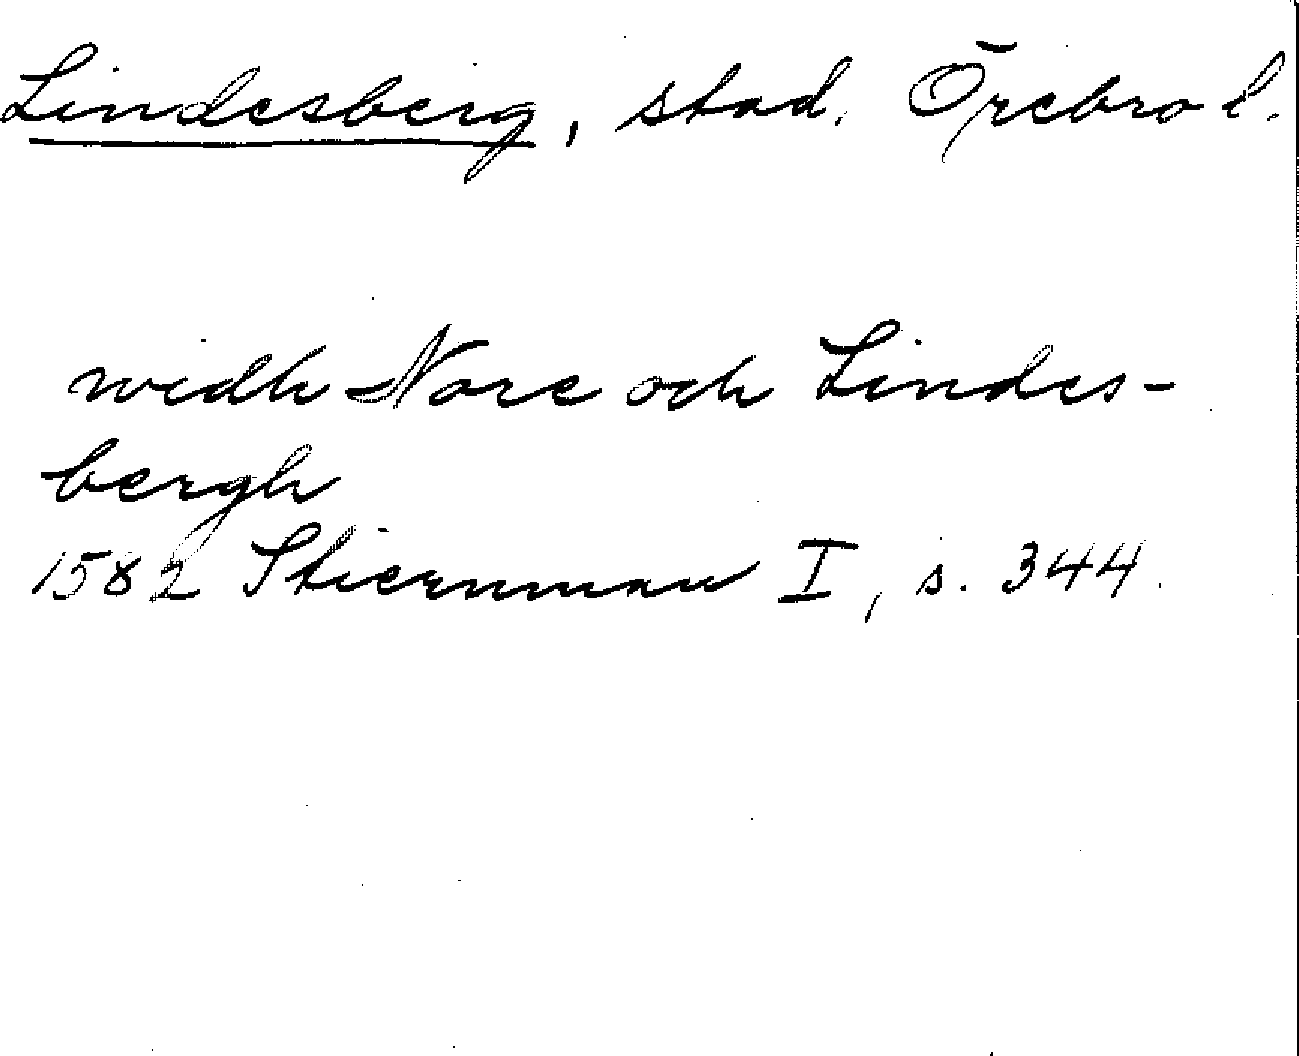 Lindesberg, stad. Örebro l.
widh Nore och Lindes-
bergh
1582 Stiernman I, s. 344.